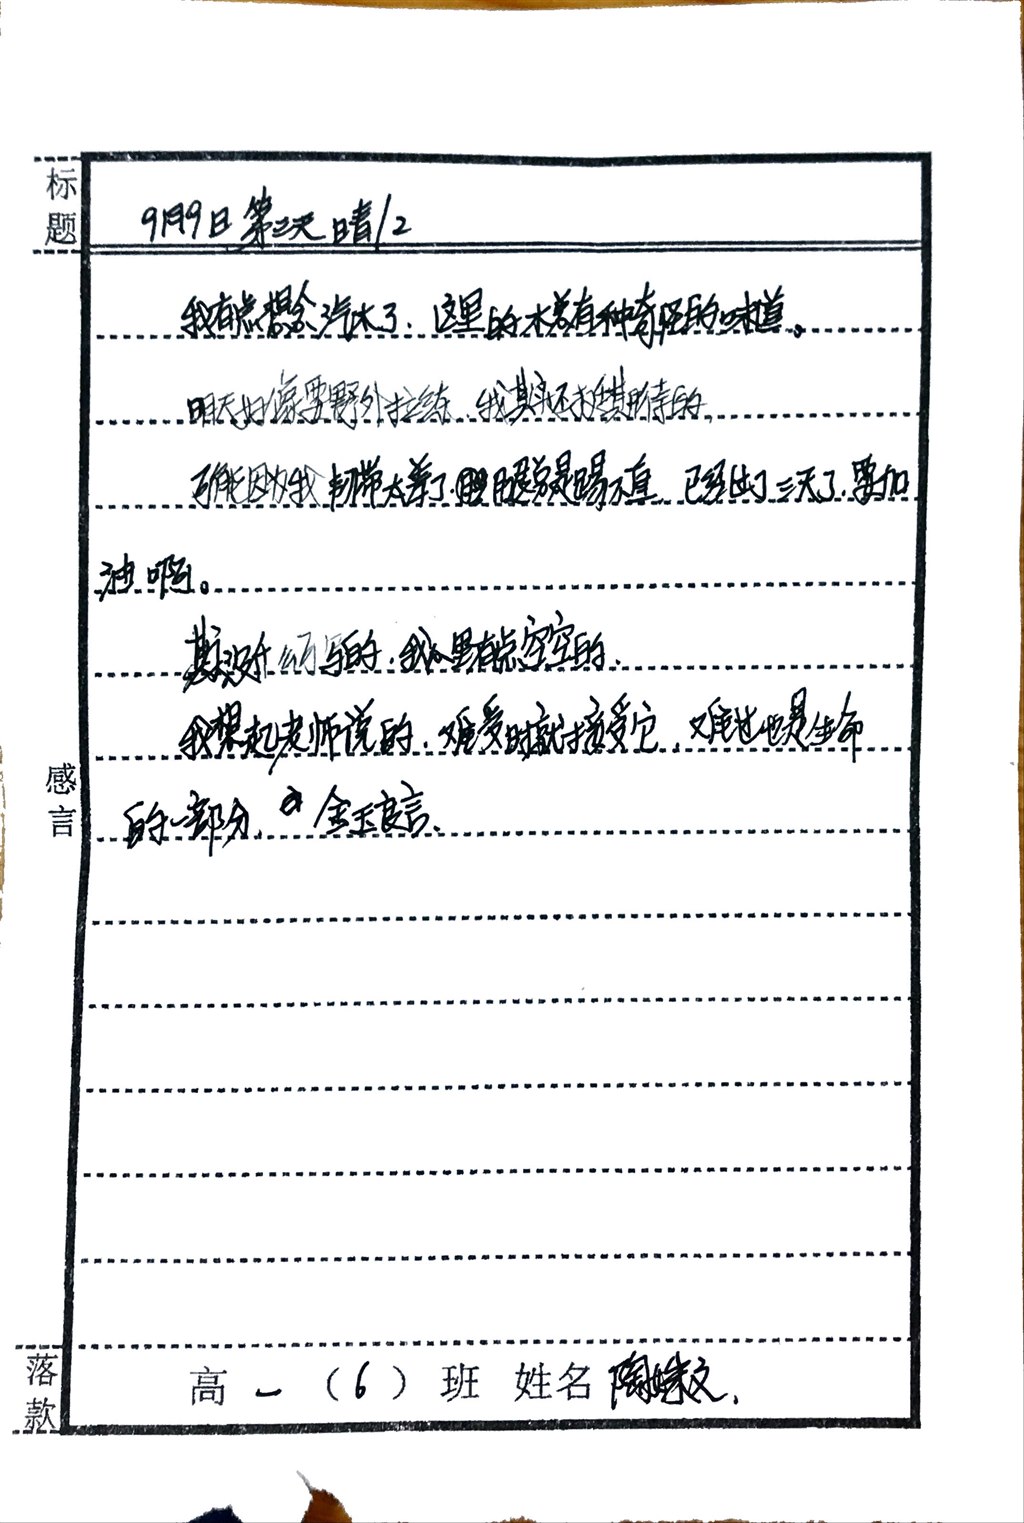 标题
9月9日 第三天 晴/2
我有点想念汽水了，这里的水总有种奇怪的味道。
明天好像要野外拉练，我其实还挺期待的，
可能因为我韧带太差了，腿总是踢不直，已经过了三天了，要加
油啊。
其实没什么可写的，我心里有点空空的，
我想起老师说的，难受时就接受它，难过也是生命
的一部分，金玉良言、
感言
落款
高一（6）班 姓名 陶